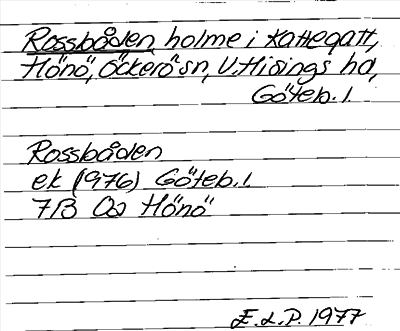 Rossbåden, holme i Kattegatt,
Hönö, Öckerö sn, V. Hisings hd,
Göteb. l.
Rossbåden
ek (1976) Göteb. l.
7B Oa Hönö
E.L.P. 1977